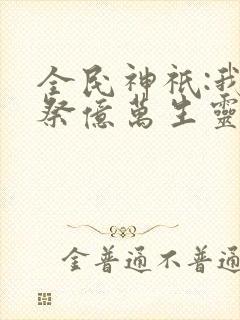 全民神祇:我
祭億萬生靈
金普通不普通